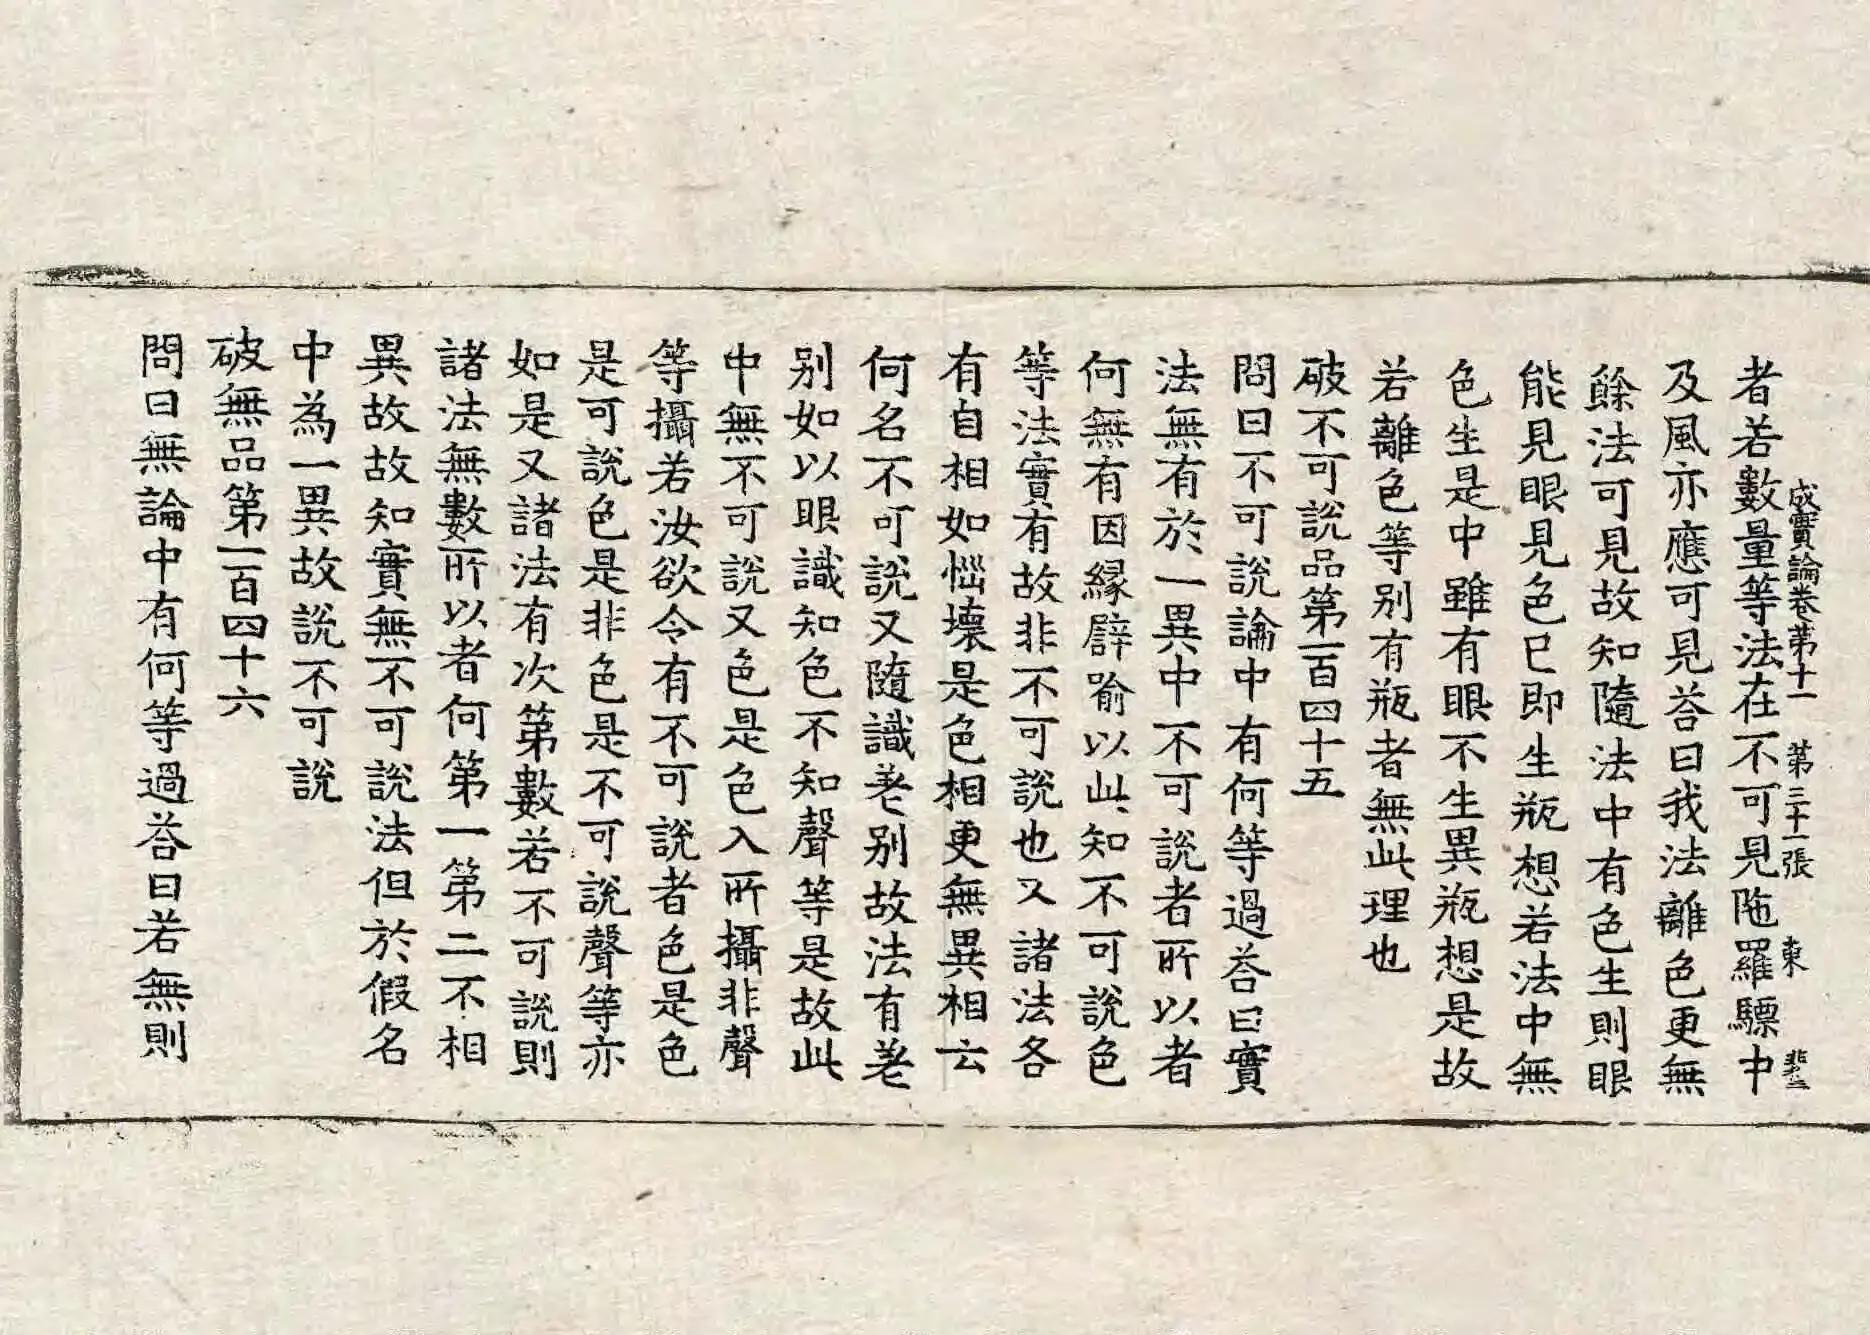 成實論卷苐十一 第三十一張 東
者若數量等法在不可見陁羅驃中
及風亦應可見荅曰我法離色更無
餘法可見故知隨法中有色生則眼
能見眼見色已即生瓶想若法中無
色生是中雖有眼不生異瓶想是故
若離色等別有瓶者無此理也
破不可說品第一百四十五
問曰不可說論中有何等過荅曰實
法無有於一異中不可說者所以者
何無有因縁辟喻以此知不可說色
等法實有故非不可說也又諸法各
有自相如惱壞是色相更無異相云
何名不可說又隨識差別故法有差
別如以眼識知色不知聲等是故此
中無不可說又色是色入所攝非聲
等攝若汝欲令有不可說者色是色
是可說色是非色是不可說聲等亦
如是又諸法有次第數若不可說則
諸法無數所以者何第一第二不相
異故故知實無不可說法但於假名
中為一異故說不可說
破無品第一百四十六
問曰無論中有何等過荅曰若無則